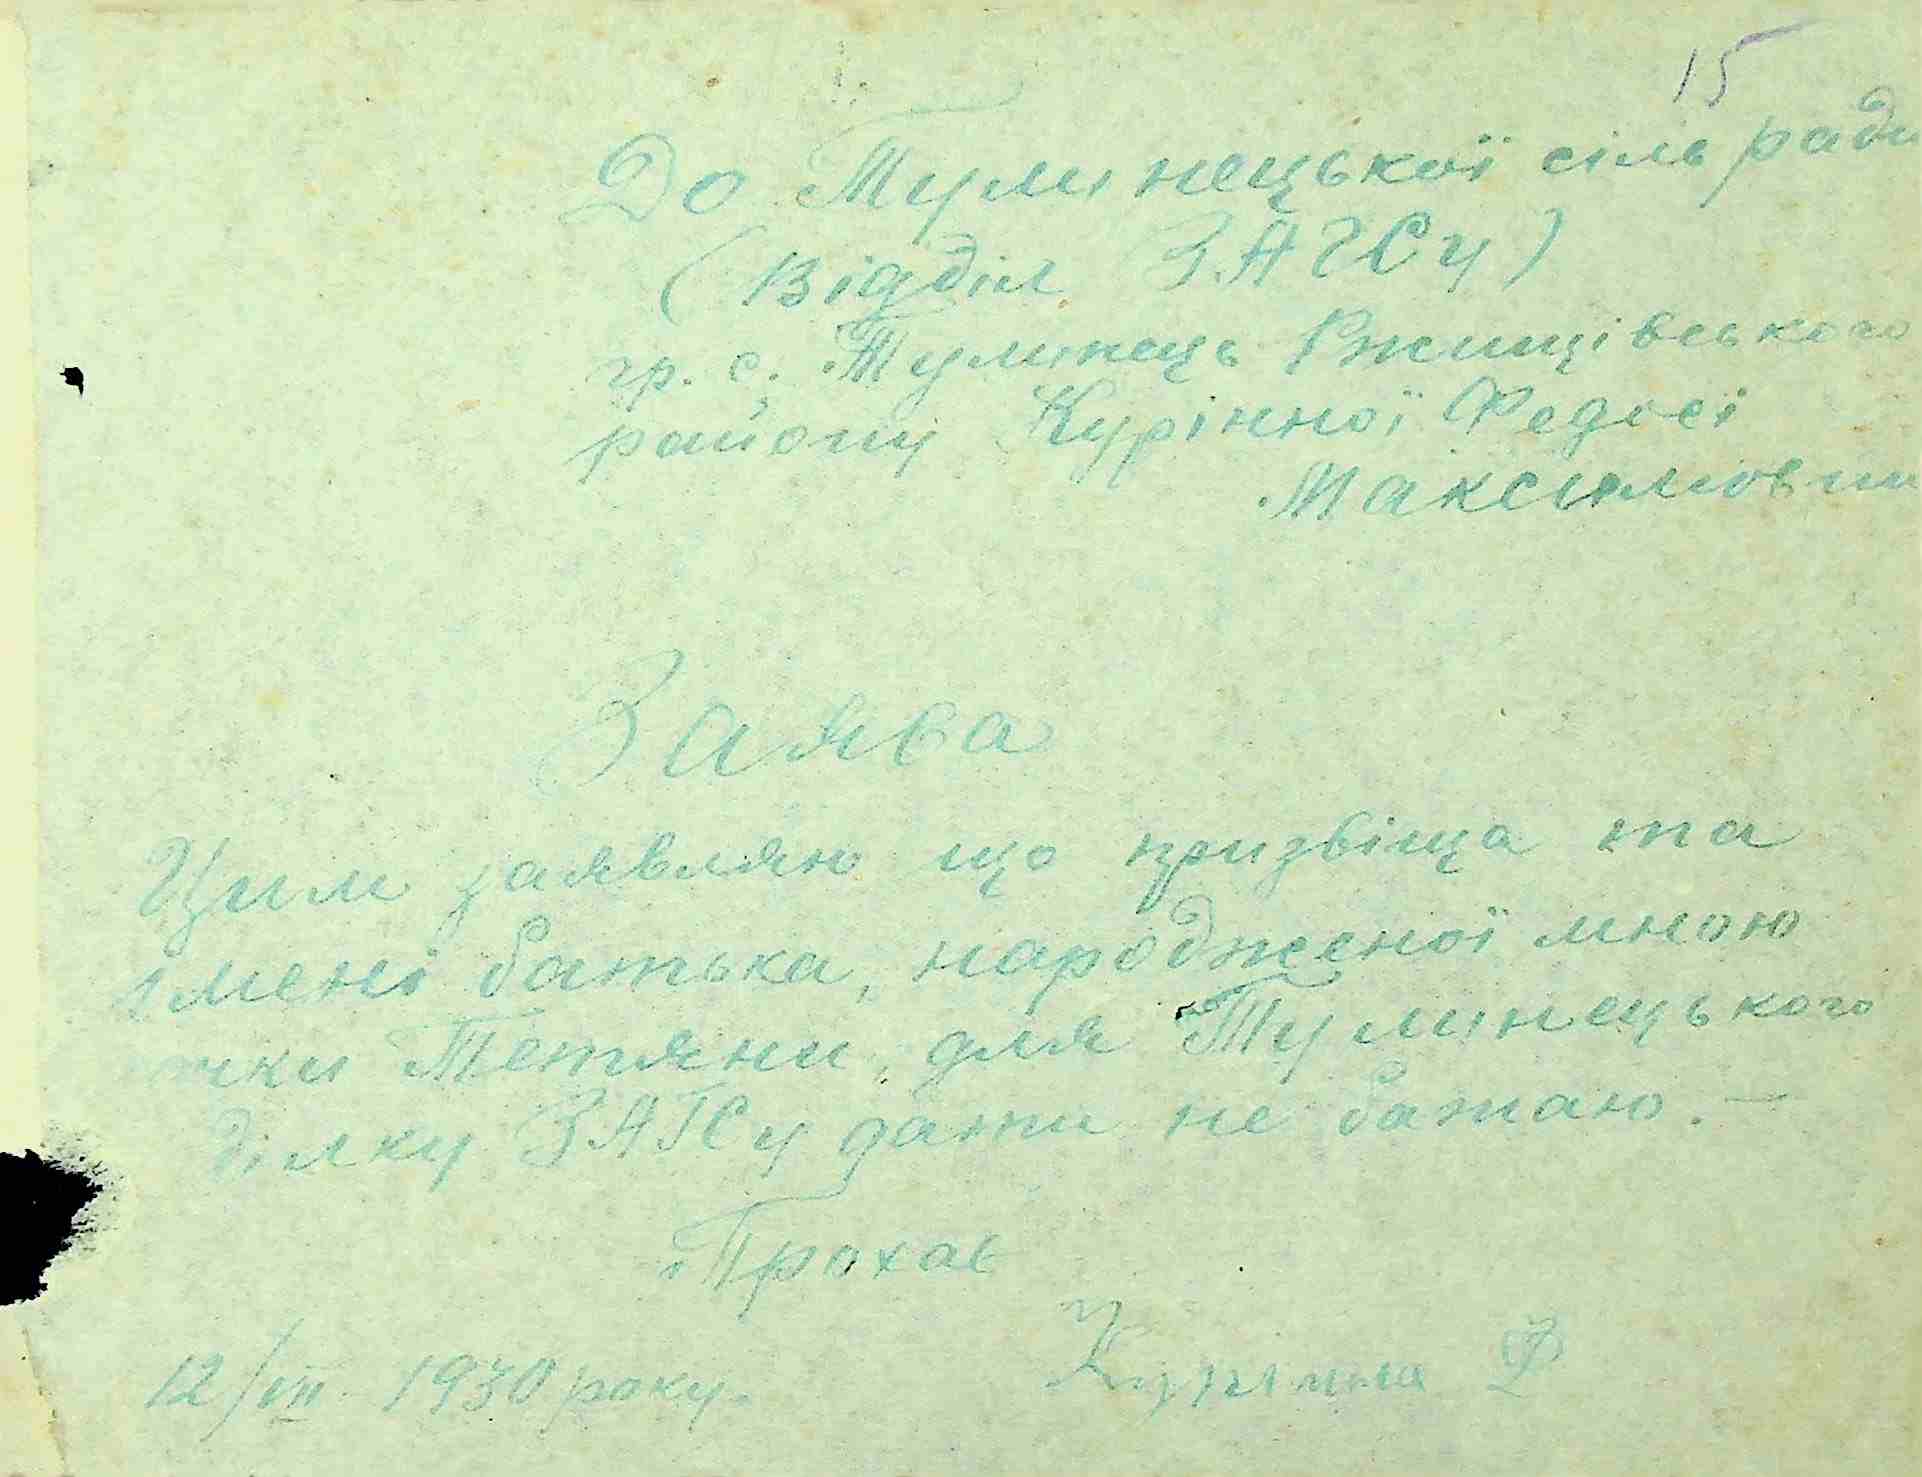 15
До Тулинецької сільради
(Відділ ЗАГСу)
гр. с. Тулинець Ржищівського
району Курінної Федосі
Максимовни
Заява
Цим заявляю що призвіща та
імені батька, народженої мною
чки Тетяни, для Тулинецького
ділку ЗАГСу дати не бажаю. —
Прохає
12/VII 1930 року. Курінна Ф